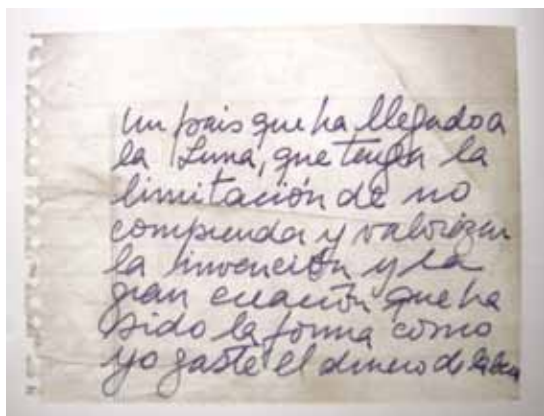 Un pais que ha llegado a
la Luna, que tenga la
limitación de no
comprender y valorizar
la invención y la
gran creación que ha
sido la forma como
yo gasté el dinero de la beca